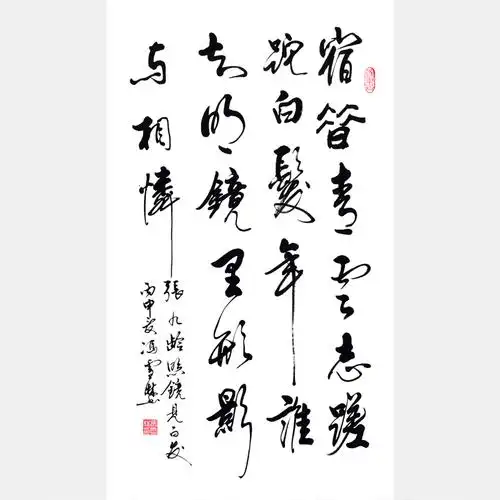 宿昔青云志蹉
跎白髮年誰
知明鏡里形影
自相憐
張九齡照鏡見白发
丙申夏馮雪